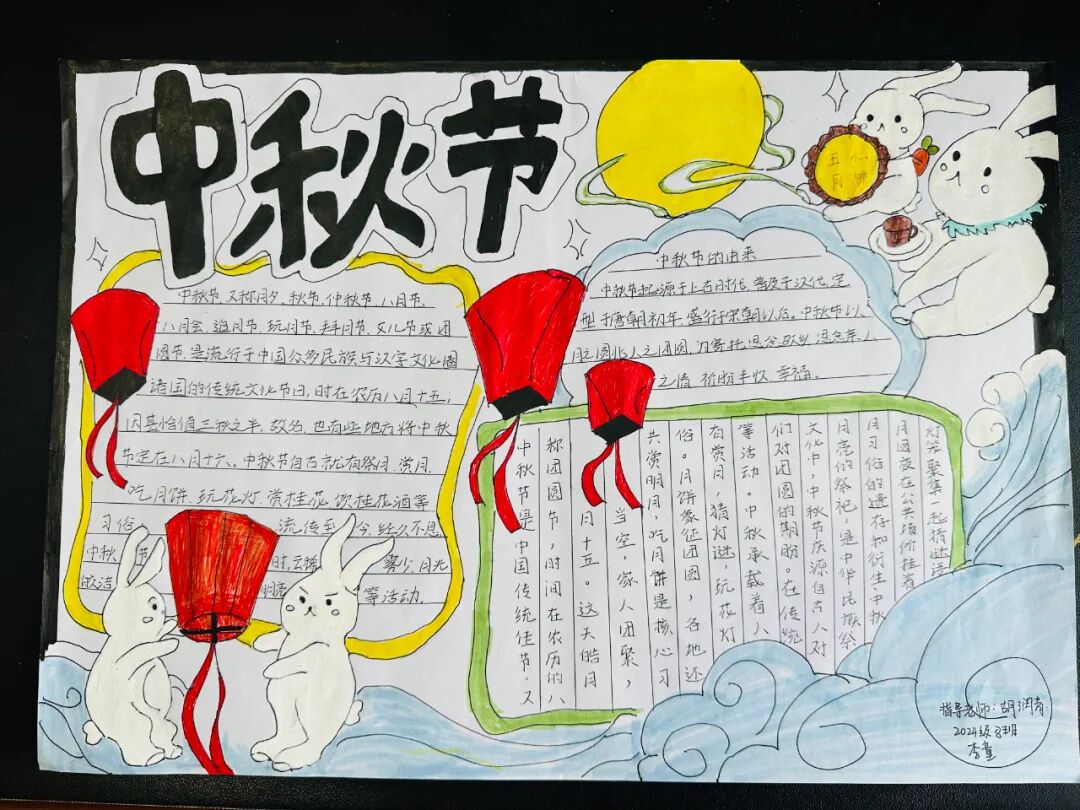 中秋节
五仁
月饼
中秋节,又称月夕、秋节、仲秋节、八月节、
八月会、追月节、玩月节、拜月节、女儿节或团
圆节,是流行于中国众多民族与汉字文化圈
诸国的传统文化节日,时在农历八月十五;
因其恰值三秋之半,故名,也有些地方将中秋
节定在八月十六。中秋节自古就有祭月、赏月、
吃月饼、玩花灯、赏桂花、饮桂花酒等
习俗 流传至今,经久不息
中秋节 时,云稀雾少,月光
皎洁 明亮 等活动
中秋节的由来
中秋节起源于上古时代,普及于汉代,定
型于唐朝初年,盛行于宋朝以后。中秋节以
月之圆兆人之团圆,为寄托思念故乡,思念亲人
之情,祈盼丰收、幸福。
中秋节是中国传统佳节,又
称团圆节,时间在农历的八
月十五。这天皓月
当空,家人团聚,
共赏明月,吃月饼是核心习
俗。月饼象征团圆,各地还
有赏月,猜灯谜,玩花灯
等活动。中秋承载着人
们对团圆的期盼。在传统
文化中,中秋节庆源自古人对
月亮的祭祀,是中华民族祭
月习俗的遗存和衍生。中秋
月圆夜在公共场所挂着
灯笼,聚集一起猜谜语
指导老师:胡润青
2024级8班
李童